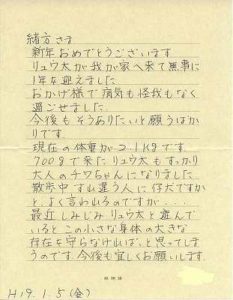 緒方さま
新年おめでとうございます
リュウ太が我が家へ来て無事に
1年を迎えました
おかげ様で病気も怪我もなく
過ごせました
今後もそうありたいと願うばか
りです
現在の体重が2.1kgです
700gで来たリュウ太もすっかり
大人のチワちゃんになりました
散歩中すれ違う人に仔犬ですか
と、よく言われるのですが...
最近しみじみリュウ太と遊んで
いるとこの小さな身体の大きな
存在を守らなければ、と思ってしま
うのです。今後も宜しくお願いします.
H19.1.5(金)